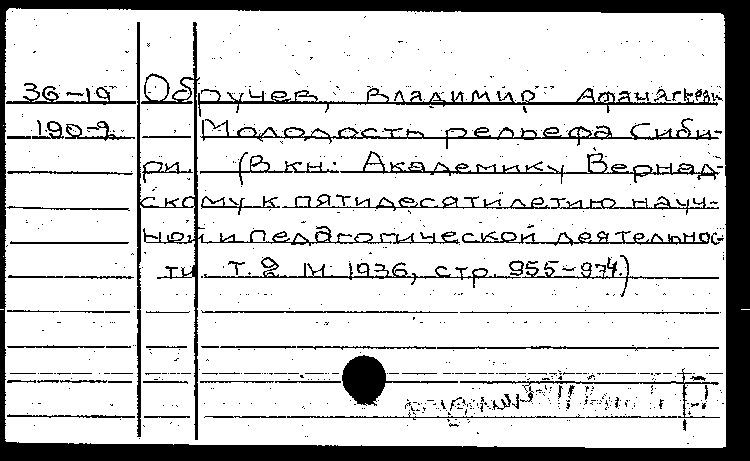 36-19 Обручев, Владимир Афанасьевич
190-2 Молодость рельефа Сиби-
ри. (В кн.: Академику Вернад-
скому к пятидесятилетию науч-
ной и педагогической деятельнос-
ти. Т. 2. М. 1936, стр. 955-974.)